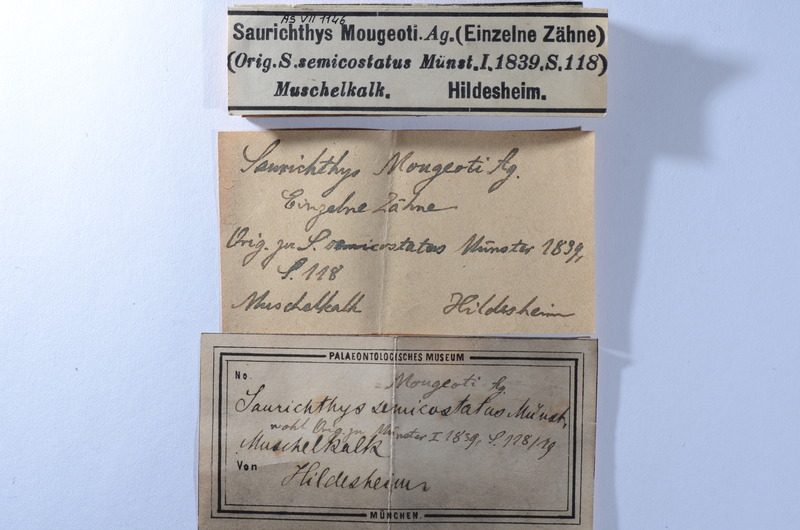 AS VII 1146
Saurichthys Mougeoti. Ag. (Einzelne Zähne)
(Orig. S. semicostatus Münst. I. 1839. S. 118)
Muschelkalk. Hildesheim.
Saurichthys Mougeoti Ag.
Einzelne Zähne
Orig. zu S. semicostatus Münster 1839,
S. 118
Muschelkalk Hildesheim
PALAEONTOLOGISCHES MUSEUM
No.
= Mougeoti Ag.
Saurichthys semicostatus Münst.
wohl Orig. zu Münster I 1839, S. 118/19
Muschelkalk
Von
Hildesheim
MÜNCHEN.